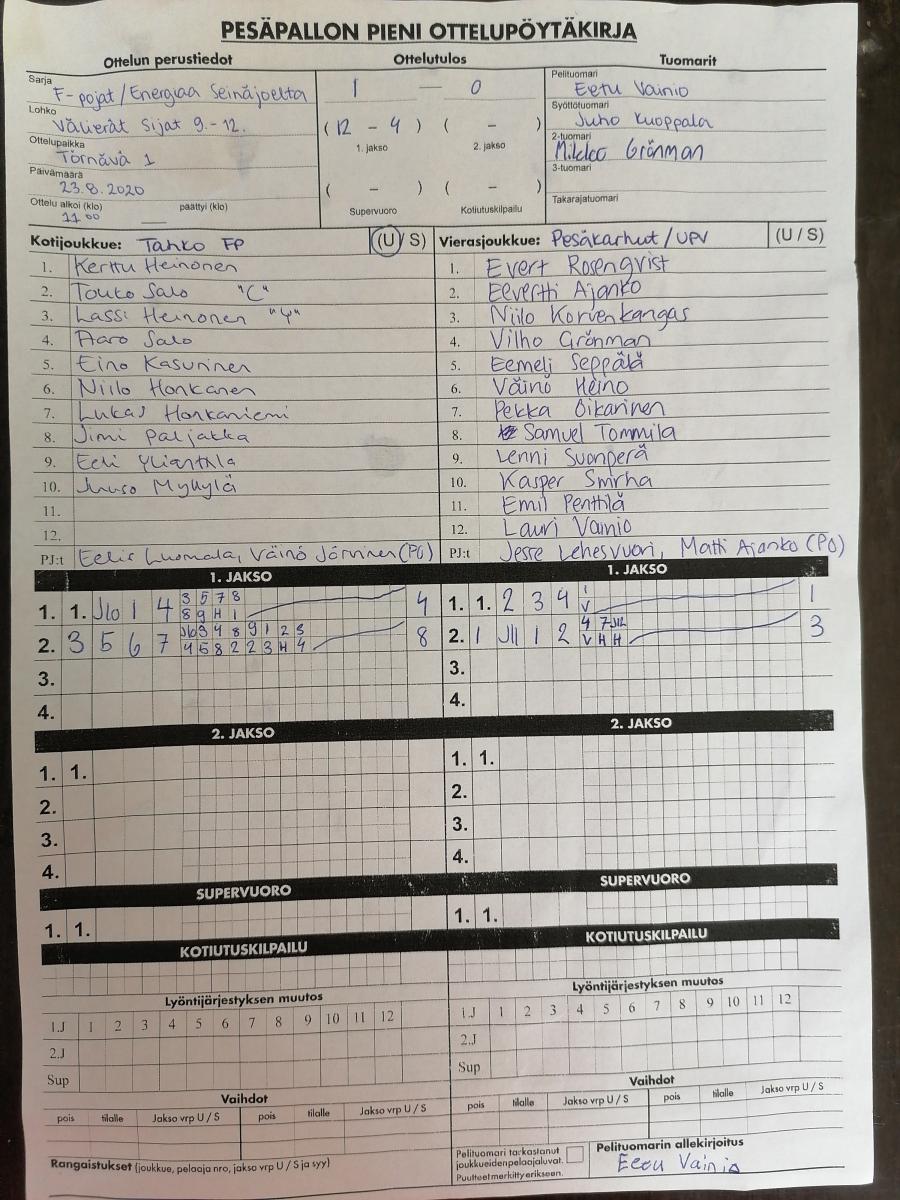 PESÄPALLON PIENI OTTELUPÖYTÄKIRJA
Ottelun perustiedot
Sarja F-pojat/Energiaa Seinäjoelta
Lohko Välierät Sijat 9.-12.
Ottelupaikka Törnävä 1
Päivämäärä 23.8.2020
Ottelu alkoi (klo) päättyi (klo)
11 00
Ottelutulos
1 — 0
(12 - 4) ( - )
1. jakso 2. jakso
( - ) ( - )
Supervuoro Kotiutuskilpailu
Tuomarit
Pelituomari Eetu Vainio
Syöttötuomari Juho Kuoppala
2-tuomari Mikko Grönman
3-tuomari
Takarajatuomari
Kotijoukkue: Tahko FP (U/S)
1. Kerttu Heinonen
2. Touko Salo "C"
3. Lassi Heinonen "Y"
4. Aaro Salo
5. Eino Kasurinen
6. Niilo Honkanen
7. Lukas Honkaniemi
8. Jimi Paljakka
9. Eeli Yliantila
10. Juuso Mylylä
11.
12.
PJ:t Eelis Luomala, Väinö Järvinen (PO)
Vierasjoukkue: Pesäkarhut/UPV (U/S)
1. Evert Rosenqvist
2. Eevertti Ajanko
3. Niilo Korvenkangas
4. Vilho Grönman
5. Eemeli Seppälä
6. Väinö Heino
7. Pekka Oikarinen
8. Samuel Tommila
9. Lenni Suonperä
10. Kasper Smirha
11. Emil Penttilä
12. Lauri Vainio
PJ:t Jesse Lehesvuori, Matti Ajanko (PO)
1. JAKSO
3 5 7 8
1. 1. J10 1 4 8 9 H 1 4
J10 3 4 8 9 1 2 3
2. 3 5 6 7 4 5 8 2 2 3 H 4 8
3.
4.
1. JAKSO
1
1. 1. 2 3 4 V 1
4 7 J12
2. 1 J11 1 2 V H H 3
3.
4.
2. JAKSO
1. 1.
2.
3.
4.
2. JAKSO
1. 1.
2.
3.
4.
SUPERVUORO
1. 1.
SUPERVUORO
1. 1.
KOTIUTUSKILPAILU
KOTIUTUSKILPAILU
Lyöntijärjestyksen muutos
1.J 1 2 3 4 5 6 7 8 9 10 11 12
2.J
Sup
Lyöntijärjestyksen muutos
1.J 1 2 3 4 5 6 7 8 9 10 11 12
2.J
Sup
Vaihdot
pois tilalle Jakso vrp U / S pois tilalle Jakso vrp U / S
Vaihdot
pois tilalle Jakso vrp U / S pois tilalle Jakso vrp U / S
Rangaistukset (joukkue, pelaaja nro, jakso vrp U / S ja syy)
Pelituomari tarkastanut
joukkueiden pelaajaluvat.
Puutteet merkitty erikseen.
Pelituomarin allekirjoitus
Eetu Vainio